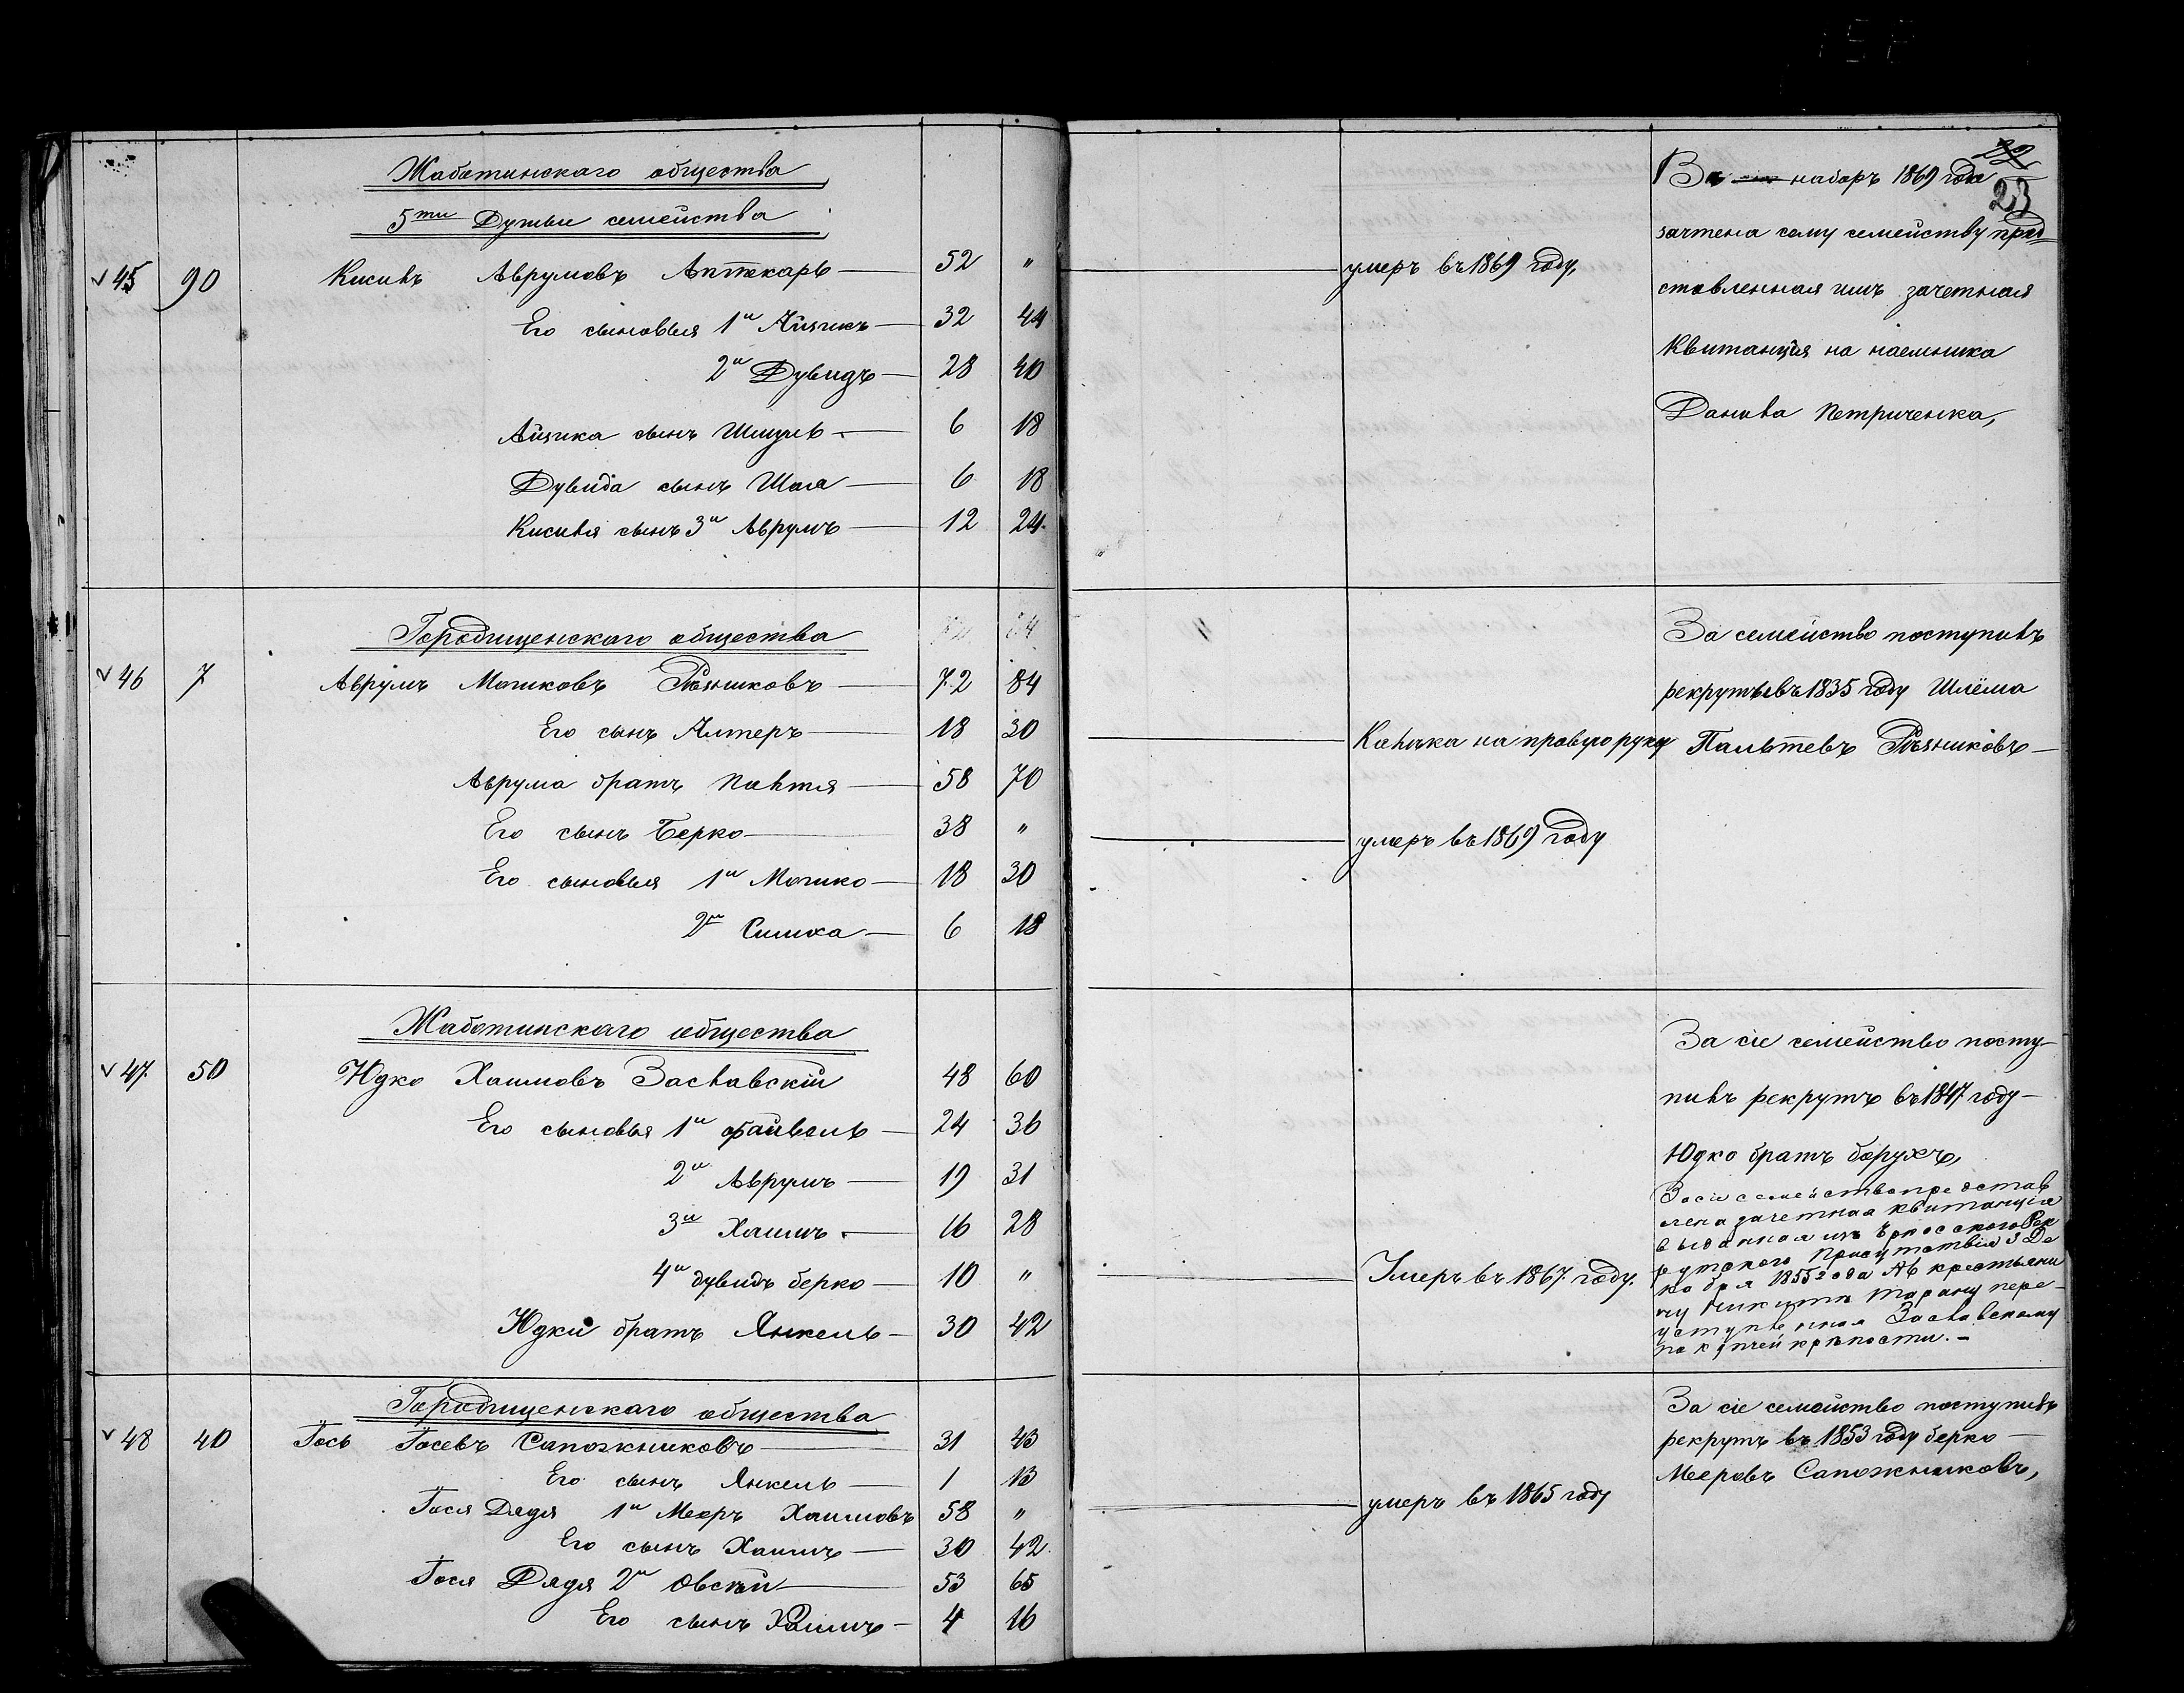 Жаботинскаго общества
5ти Душныя семейства
45 90 Кисиль Аврумовъ Аптекарь 52 "
Его сыновья 1й Айзикъ 32 44
2й Дувидъ 28 40
Айзика сынъ Шмуль 6 18
Дувида сынъ Шая 6 18
Кисиля сынъ 3й Аврумъ 12 24
Городищенскаго общества
46 7 Аврумъ Мошковъ Рѣзниковъ 72 84
Его сынъ Алтеръ 18 30
Аврума братъ Палтя 58 70
Его сынъ Берко 38 "
Его сыновья 1й Мошко 18 30
2й Симха 6 18
Жаботинскаго общества
47 50 Юдко Хаимовъ Заславскій 48 60
Его сыновья 1й Файвель 24 36
2й Аврумъ 19 31
3й Хаимъ 16 28
4й Дувидъ Берко 10 "
Юдки братъ Янкель 30 42
Городищенскаго общества
48 40 Гось Госевъ Сапожниковъ 31 43
Его сынъ Янкель 1 13
Гося Дядя 1й Мееръ Хаимовъ 58 "
Его сынъ Хаимъ 30 42
Гося Дядя 2й Овсѣй 53 65
Его сынъ Хаимъ 4 16
22
23
умеръ въ 1869 году,
Калѣка на правую руку
умеръ въ 1869 году
Умеръ въ 1867 году.
умеръ въ 1865 году
Въ наборъ 1869 года
зачтена сему семейству пред-
ставленная имъ зачетная
Квитанція на наемника
Данила Петриченка,
За семейство поступилъ
рекрутъ въ 1835 году Шлёма
Пальтевъ Рѣзниковъ
За сіе семейство посту-
пилъ рекрутъ въ 1847 году
Юдко братъ Борухъ,
За сіе семейство представ
лена зачетная квитанція
выданная изъ Рек
рутскаго Присутствія 3 Де
кабря 1855 года № крестьяни
ну Никитѣ Тарану пере-
уступленная Заславскому
по купчей крѣпости.
За сіе семейство поступилъ
рекрутъ въ 1853 году Берко
Мееровъ Сапожниковъ,